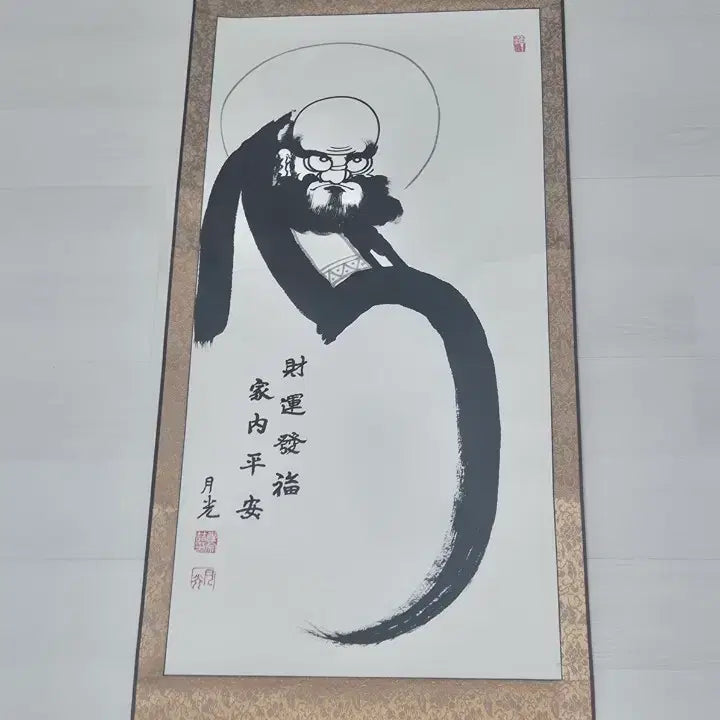 財運發福
家内平安
月光